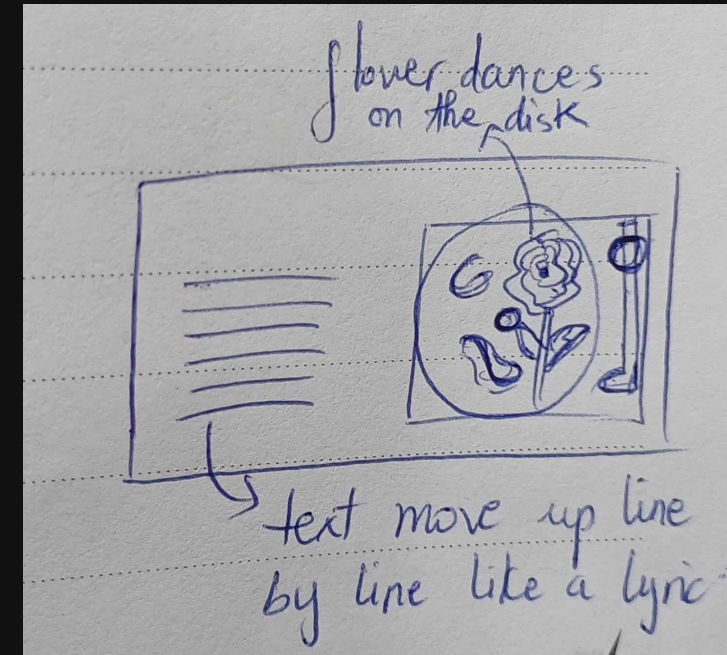 flower dances
on the disk
text move up line
by line like a lyric